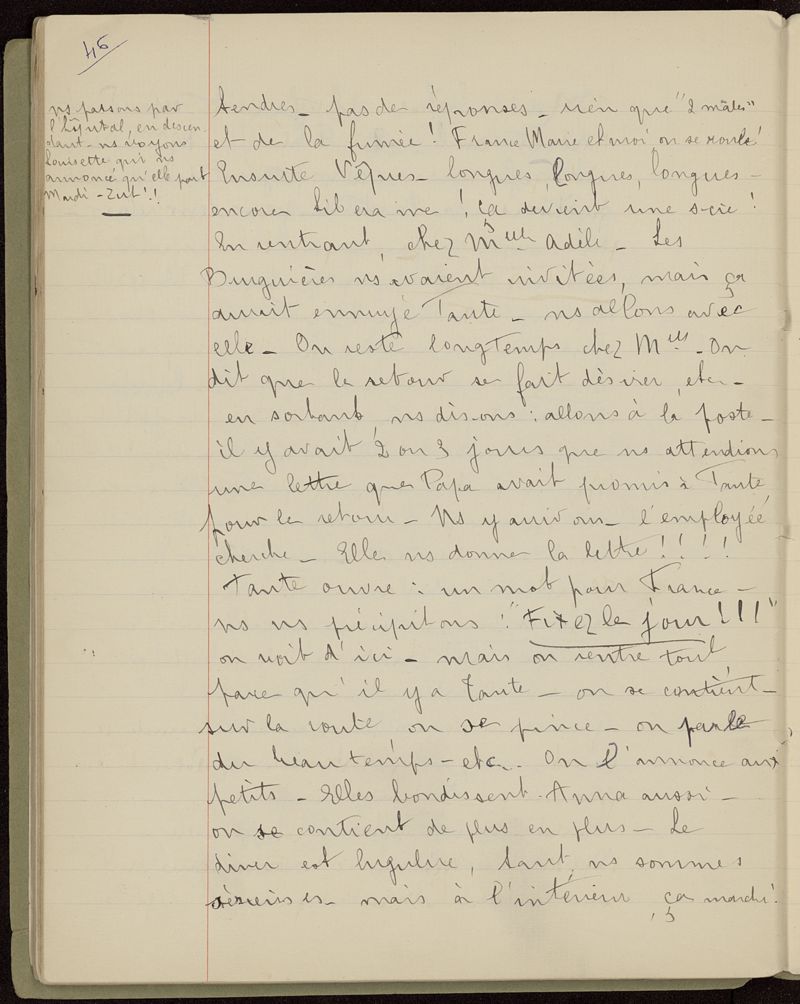 46
ns passons par
l'hôpital, en descen
dant - ns voyons
Louisette qui ns
annonce qu'elle part
Mardi - Zut!!
tendres - pas de réponses - rien que "2 mâles"
et de la fumée! France Marie et moi on se roule!
Ensuite Vêpres - longues, longues, longues -
encore libera me! ça devient une scie!
En rentrant, chez Melle Adèle - Les
ns avaient invitées, mais ça
aurait ennuyé Tante - ns allons avec
elle - On reste longtemps chez Melles - On
dit que le retour se fait désirer, etc -
en sortant, ns disons: allons à la poste -
il y avait 2 ou 3 jours que ns attendions
une lettre que Papa avait promis à Tante,
pour le retour - Ns y arrivons - l'employée
cherche - Elle ns donne la lettre!!!!
Tante ouvre: un mot pour France -
ns ns précipitons: "Fixez le jour!!!"
on voit d'ici - mais on rentre tout,
parce qu'il y a Tante - on se contient -
sur la route on se pince - on parle
du beau temps - etc. On l'annonce aux
petits - Elles bondissent - Anna aussi -
on se contient de plus en plus - Le
diner est lugubre, tant ns sommes
sérieuses - mais à l'intérieur, ça marche!